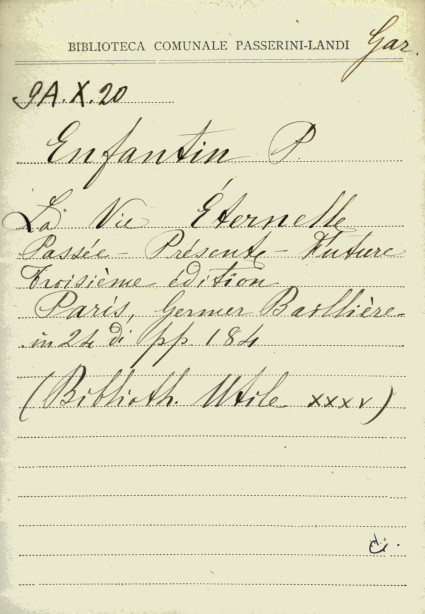 BIBLIOTECA COMUNALE PASSERINI-LANDI Gar.
9A.X.20
Enfantin P.
La Vie Éternelle
Passée - Présente - Future
Troisième édition
Paris, Germer Baillière
in 24 di pp 184
(Biblioth. Utile xxxv)